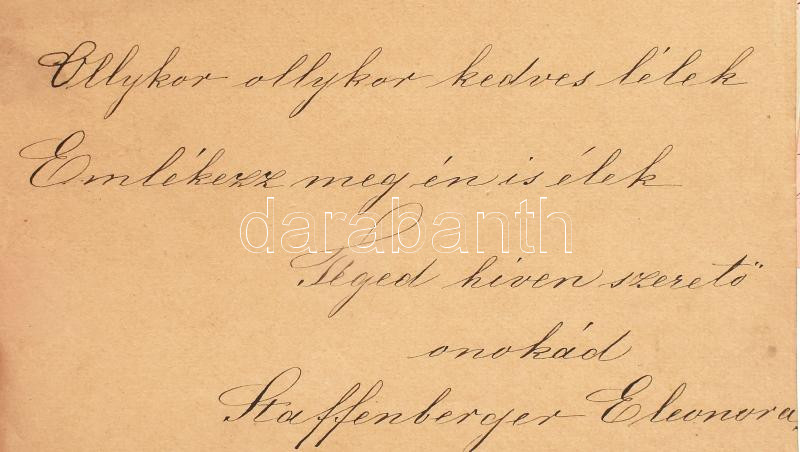 Ollykor ollykor kedves lélek
Emlékezz meg én is élek
darabanth
Téged híven szerető
onokád
Staffenberger Eleonora,